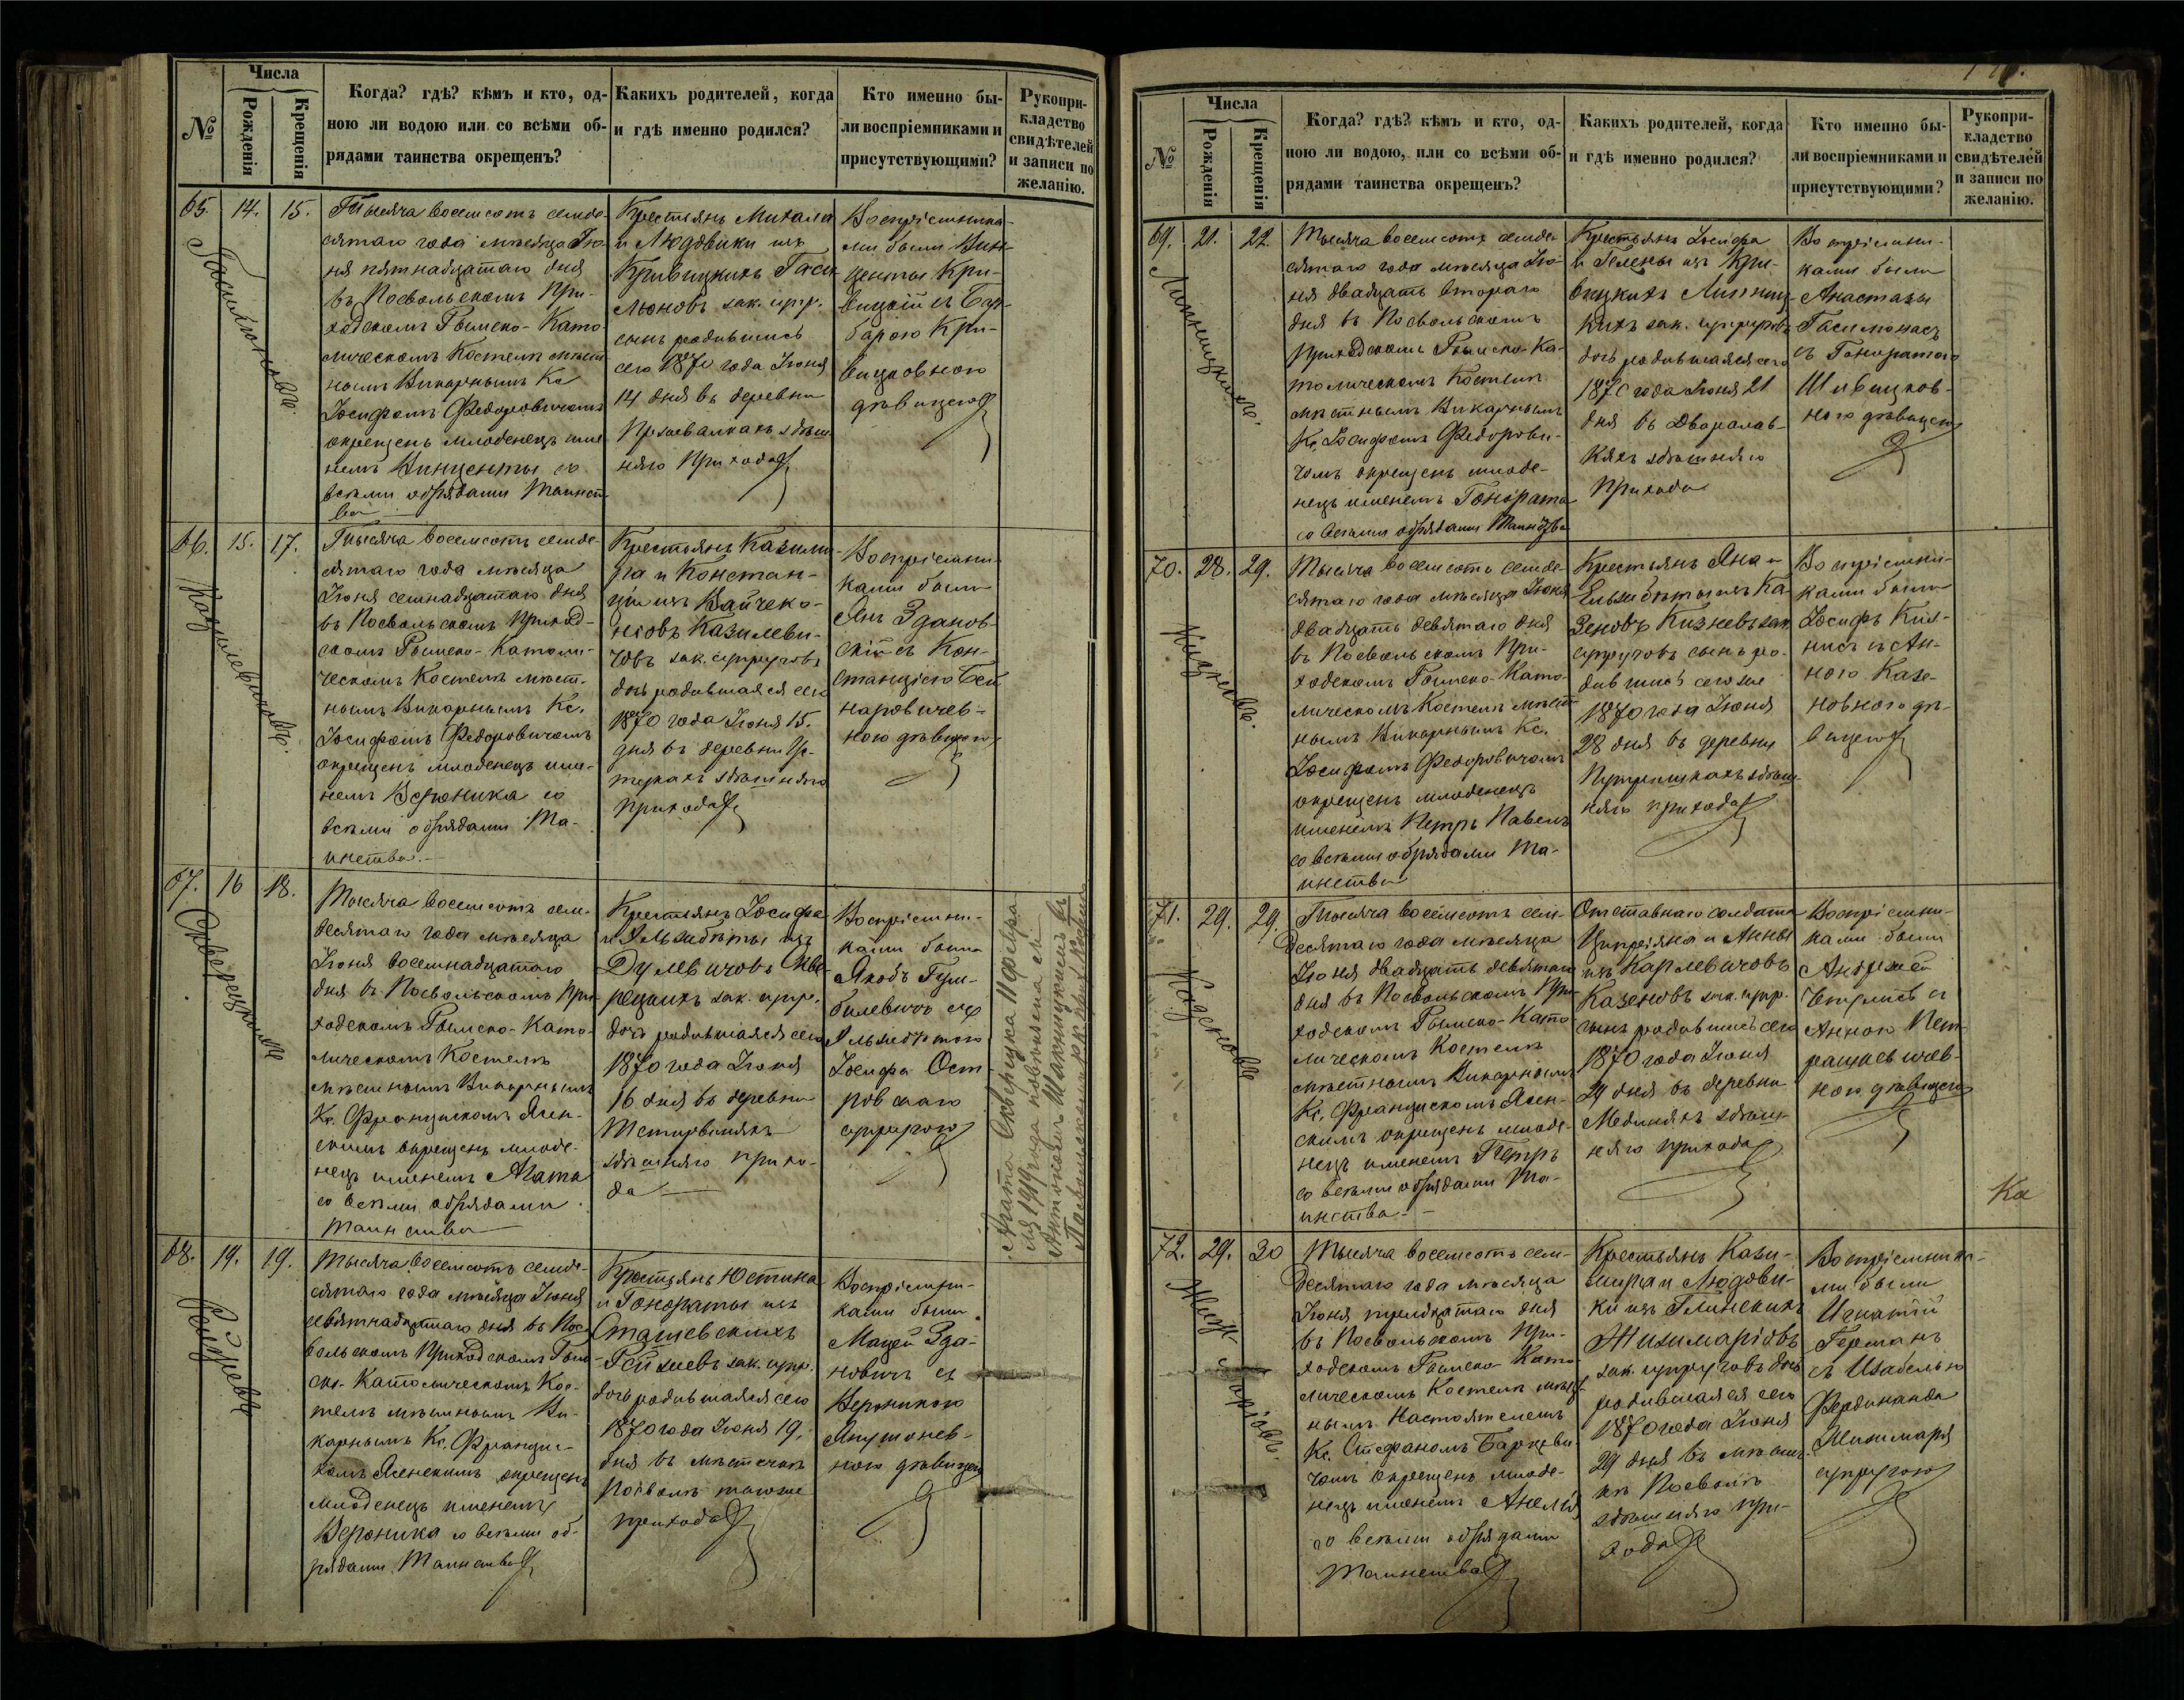 №
Числа
Рожденія
Крещенія
Когда? гдѣ? кѣмъ и кто, од-
ною ли водою или со всѣми об-
рядами таинства окрещенъ?
Какихъ родителей, когда
и гдѣ именно родился?
Кто именно бы-
ли воспріемниками и
присутствующими?
Рукопри-
кладство
свидѣтелей
и записи по
желанію.
65.
14.
15.
Тысяча восемсотъ семде-
сятаго года мѣсяца Iю-
ня пятнадцатаго дня
въ Посвольскомъ При-
ходскомъ Римско-Като-
лическомъ Костелѣ мѣст
нымъ Викарнымъ Кс
Iосифомъ Федоровичомъ
окрещенъ младенецъ име
немъ Винценты со
всѣми обрядами Таинст
ва
Крестьянъ Михала
и Людовики изъ
Кривицкихъ Гаси
люновъ зак. супр.
сынъ родившись
сего 1870 года Iюня
14 дня въ деревни
здѣш
няго Прихода
Воспріемника-
ми были Вин
центы Кри-
вицкій съ Бар-
барою Кри-
вицковною
дѣвицею
66.
15.
17.
Тысяча восемсотъ семде-
сятаго года мѣсяца
Iюня семнадцатаго дня
въ Посвольскомъ Приход-
скомъ Римско-Католи-
ческомъ Костелѣ мѣст-
нымъ Викарнымъ Кс.
Iосифомъ Федоровичомъ
окрещенъ младенецъ име-
немъ Вероника со
всѣми обрядами Та-
инства.
Крестьянъ Казими-
ра и Констан-
ціи изъ Вайчеко-
нисовъ Казилеви-
човъ зак. супруговъ
дочь родившаяся сего
1870 года Iюня 15.
дня въ деревни
здѣшняго
Прихода
Воспріемни-
ками были
Янъ Зданов-
скій съ Кон-
станціею Бей
наровичев-
ною дѣвицею
67.
16
18.
Тысяча восемсотъ сем-
десятаго года мѣсяца
Iюня восемнадцатаго
дня въ Посвольскомъ При
ходскомъ Римско-Като-
лическомъ Костелѣ
мѣстнымъ Викарнымъ
Кс. Францискомъ Ясен-
скимъ окрещенъ младе-
нецъ именемъ Агата
со всѣми обрядами
таинства
Крестьянъ Iосифа
и Эльзбѣты изъ
Дулевичовъ Скве-
рецкихъ зак. супр.
дочь родившаяся сего
1870 года Iюня
16 дня въ деревни
здѣшняго прихо-
да
Воспріемни-
ками были
Якобъ Гум-
билевичъ съ
Эльзбѣтою
Iосифа Ост-
ровскаго
супругою
68.
19.
19.
Тысяча восемсотъ семде-
сятаго года мѣсяца Iюня
девятнадцатаго дня въ Пос-
вольскомъ Приходскомъ Рим
ско-Католическомъ Кос-
телѣ мѣстнымъ Ви-
карнымъ Кс. Францис-
комъ Ясенскимъ окрещенъ
младенецъ именемъ
Вероника со всѣми об-
рядами Таинства
Крестьянъ Юстина
и Гонораты изъ
Сташевскихъ
Рейзиевъ зак. супр.
дочь родившаяся сего
1870 года Iюня 19.
дня въ мѣстечкѣ
Посволѣ тогоже
прихода
Воспріемни-
ками были
Мацей Зда-
новичъ съ
Вероникою
Янушонев-
ною дѣвицею
№
Числа
Рожденія
Крещенія
Когда? гдѣ? кѣмъ и кто, од-
ною ли водою, или со всѣми об-
рядами таинства окрещенъ?
Какихъ родителей, когда
и гдѣ именно родился?
Кто именно бы-
ли воспріемниками и
присутствующими?
Рукопри-
кладство
свидѣтелей
и записи по
желанію.
69.
21.
22.
Тысяча восемсотъ семде-
сятаго года мѣсяца Iю-
ня двадцать втораго
дня въ Посвольскомъ
приходскомъ Римско-Ка-
толическомъ Костелѣ
мѣстнымъ Викарнымъ
Кс. Iосифомъ Федорови-
чомъ окрещенъ младе-
нецъ именемъ Гонората
со всѣми обрядами Таинства
Крестьянъ Iосифа
и Гелены изъ Кри-
вицкихъ Липниц-
кихъ зак. супруговъ
дочь родившаяся сего
1870 года Iюня 21
дня въ Дворалав-
кяхъ здѣшняго
Прихода
Воспріемни-
ками были
Анастазы
Гасилонасъ
съ Гоноратою
Шивицков-
ною дѣвицею
70.
28.
29.
Тысяча восемсотъ семде-
сятаго года мѣсяца Iюня
двадцать девятаго дня
въ Посвольскомъ При-
ходскомъ Римско-Като-
лическомъ Костелѣ мѣст
нымъ Викарнымъ Кс.
Iосифомъ Федоровичомъ
окрещенъ младенецъ
именемъ Петръ Павелъ
со всѣми обрядами Та-
инства
Крестьянъ Яна и
Ельзбѣты изъ Ка-
зеновъ Кизневъ зак.
супруговъ сынъ ро-
дившись сегоже
1870 года Iюня
28 дня въ деревни
здѣш
няго прихода
Воспріемни-
ками были
Iосифъ Киз-
нисъ съ Ан-
ною Казе-
новною дѣ-
вицею
71.
29.
29.
Тысяча восемсотъ сем-
десятаго года мѣсяца
Iюня двадцать девятаго
дня въ Посвольскомъ При
ходскомъ Римско-Като-
лическомъ Костелѣ
мѣстнымъ Викарнымъ
Кс. Францискомъ Ясен-
скимъ окрещенъ младе-
нецъ именемъ Петръ
со всѣми обрядами Та-
инства
Отставнаго солдата
Ципріяна и Анны
изъ Карлевичовъ
Казеновъ зак. супр.
сынъ родившись сего
1870 года Iюня
29 дня въ деревни
здѣш-
няго прихода
Воспріемни-
ками были
Андржей
съ
Анною Пет-
рашкевичев-
ною дѣвицею
Ка
72.
29.
30
Тысяча восемсотъ сем-
десятаго года мѣсяца
Iюня тридцатаго дня
въ Посвольскомъ При-
ходскомъ Римско-Като-
лическомъ Костелѣ мѣст-
нымъ Настоятелемъ
Кс. Стефаномъ Барцеви-
чомъ окрещенъ младе-
нецъ именемъ Анеля
со всѣми обрядами
таинства
Крестьянъ Кази-
мира и Людови-
ки изъ Глинскихъ
Жизмаріовъ
зак. супруговъ дочь
родившаяся сего
1870 года Iюня
29 дня въ мѣстеч-
кѣ Посволѣ
здѣшняго при-
хода
Воспріемника-
ми были
Игнатій
Германъ
съ Изабелью
Фердинанда
Жизмаря
супругою